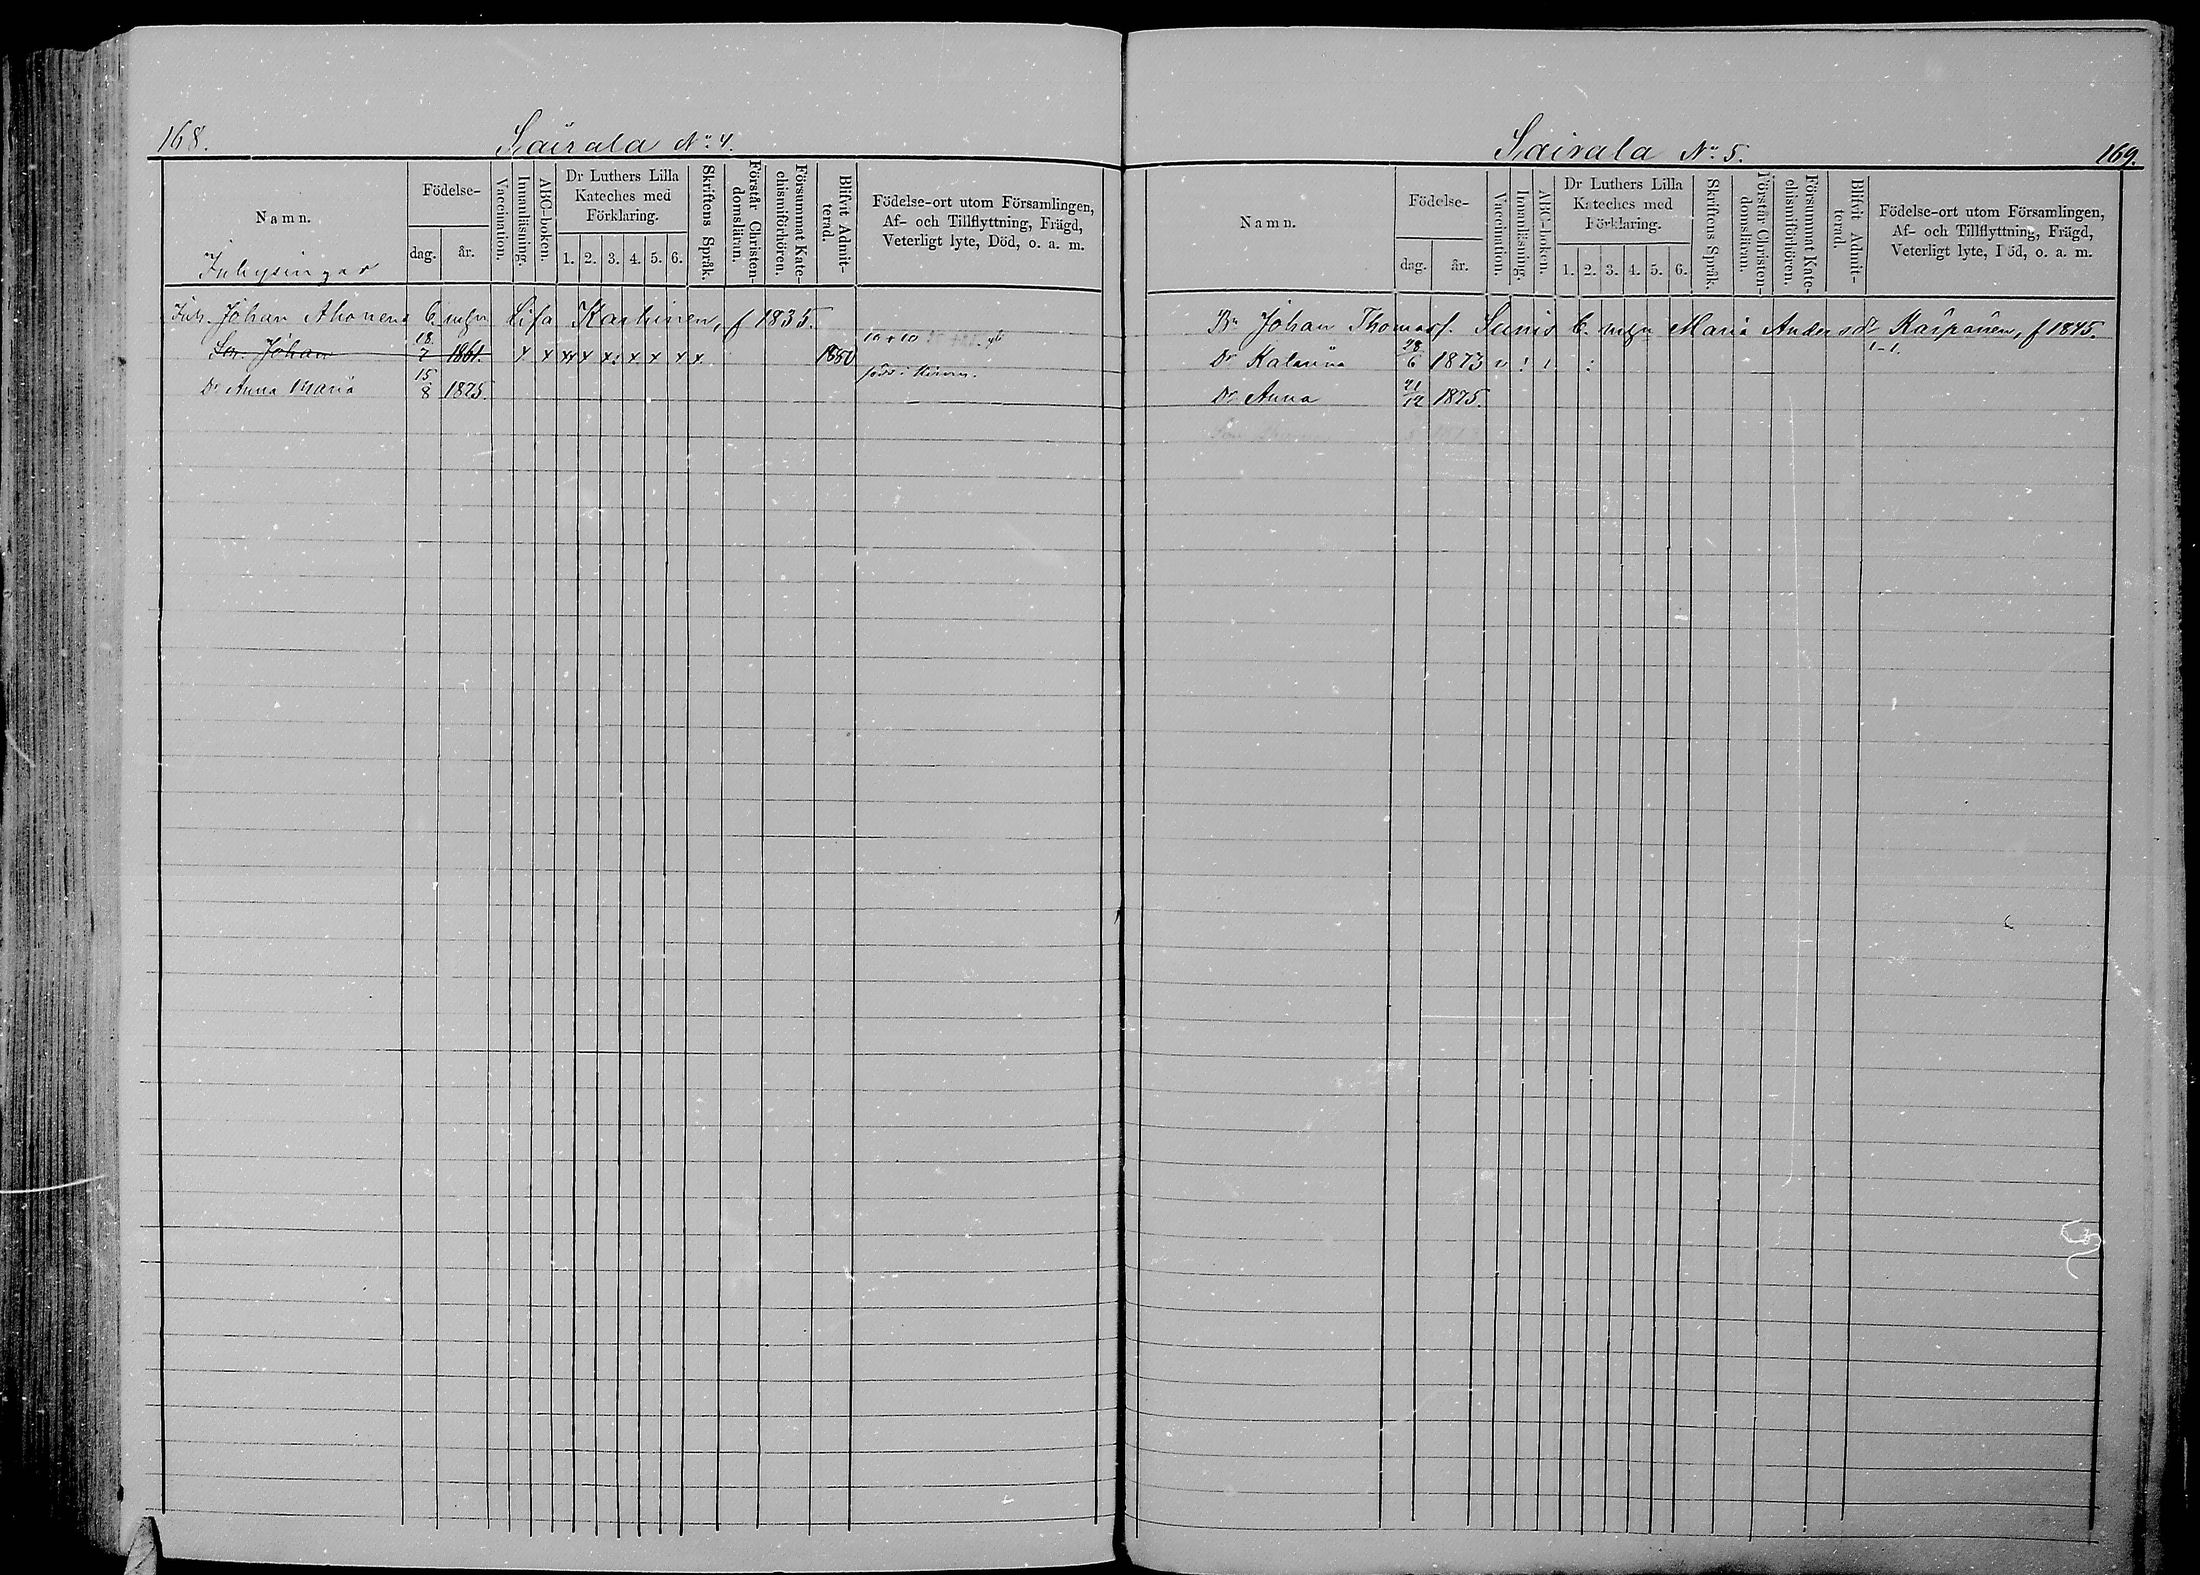 168.
Sairala No 4.
Namn.
Födelse-
dag.
år.
Vaccination.
Innanläsning.
ABC-boken.
Dr Luthers Lilla
Kateches med
Förklaring.
1. 2. 3. 4. 5. 6.
Skriftens Språk.
Förstår Christen-
domsläran.
Försummat Kate-
chismiförhören.
Blifvit Admit-
terad.
Födelse-ort utom Församlingen,
Af- och Tillflyttning, Frägd,
Veterligt lyte, Död, o. a. m.
Inhysingar
Inh. Johan Ahonens E. mgn Lisa Karhinen, f 1835.
Son Johan 18/7 1861. x x xx x x: x x x x. 1880
Dr Anna Maria 15/8 1875.
Sairala No 5.
169.
Namn.
Födelse-
dag.
år.
Vaccination.
Innanläsning.
ABC-boken.
Dr Luthers Lilla
Kateches med
Förklaring.
1. 2. 3. 4. 5. 6.
Skriftens Språk.
Förstår Christen-
domsläran.
Försummat Kate-
chismiförhören.
Blifvit Admit-
terad.
Födelse-ort utom Församlingen,
Af- och Tillflyttning, Frägd,
Veterligt lyte, Död, o. a. m.
Br Johan Thomass. Sunis E. mgn Maria Andersdr Kaiponen, f 1845.
Dr Katarina 28/6 1873
Dr Anna 21/12 1875.